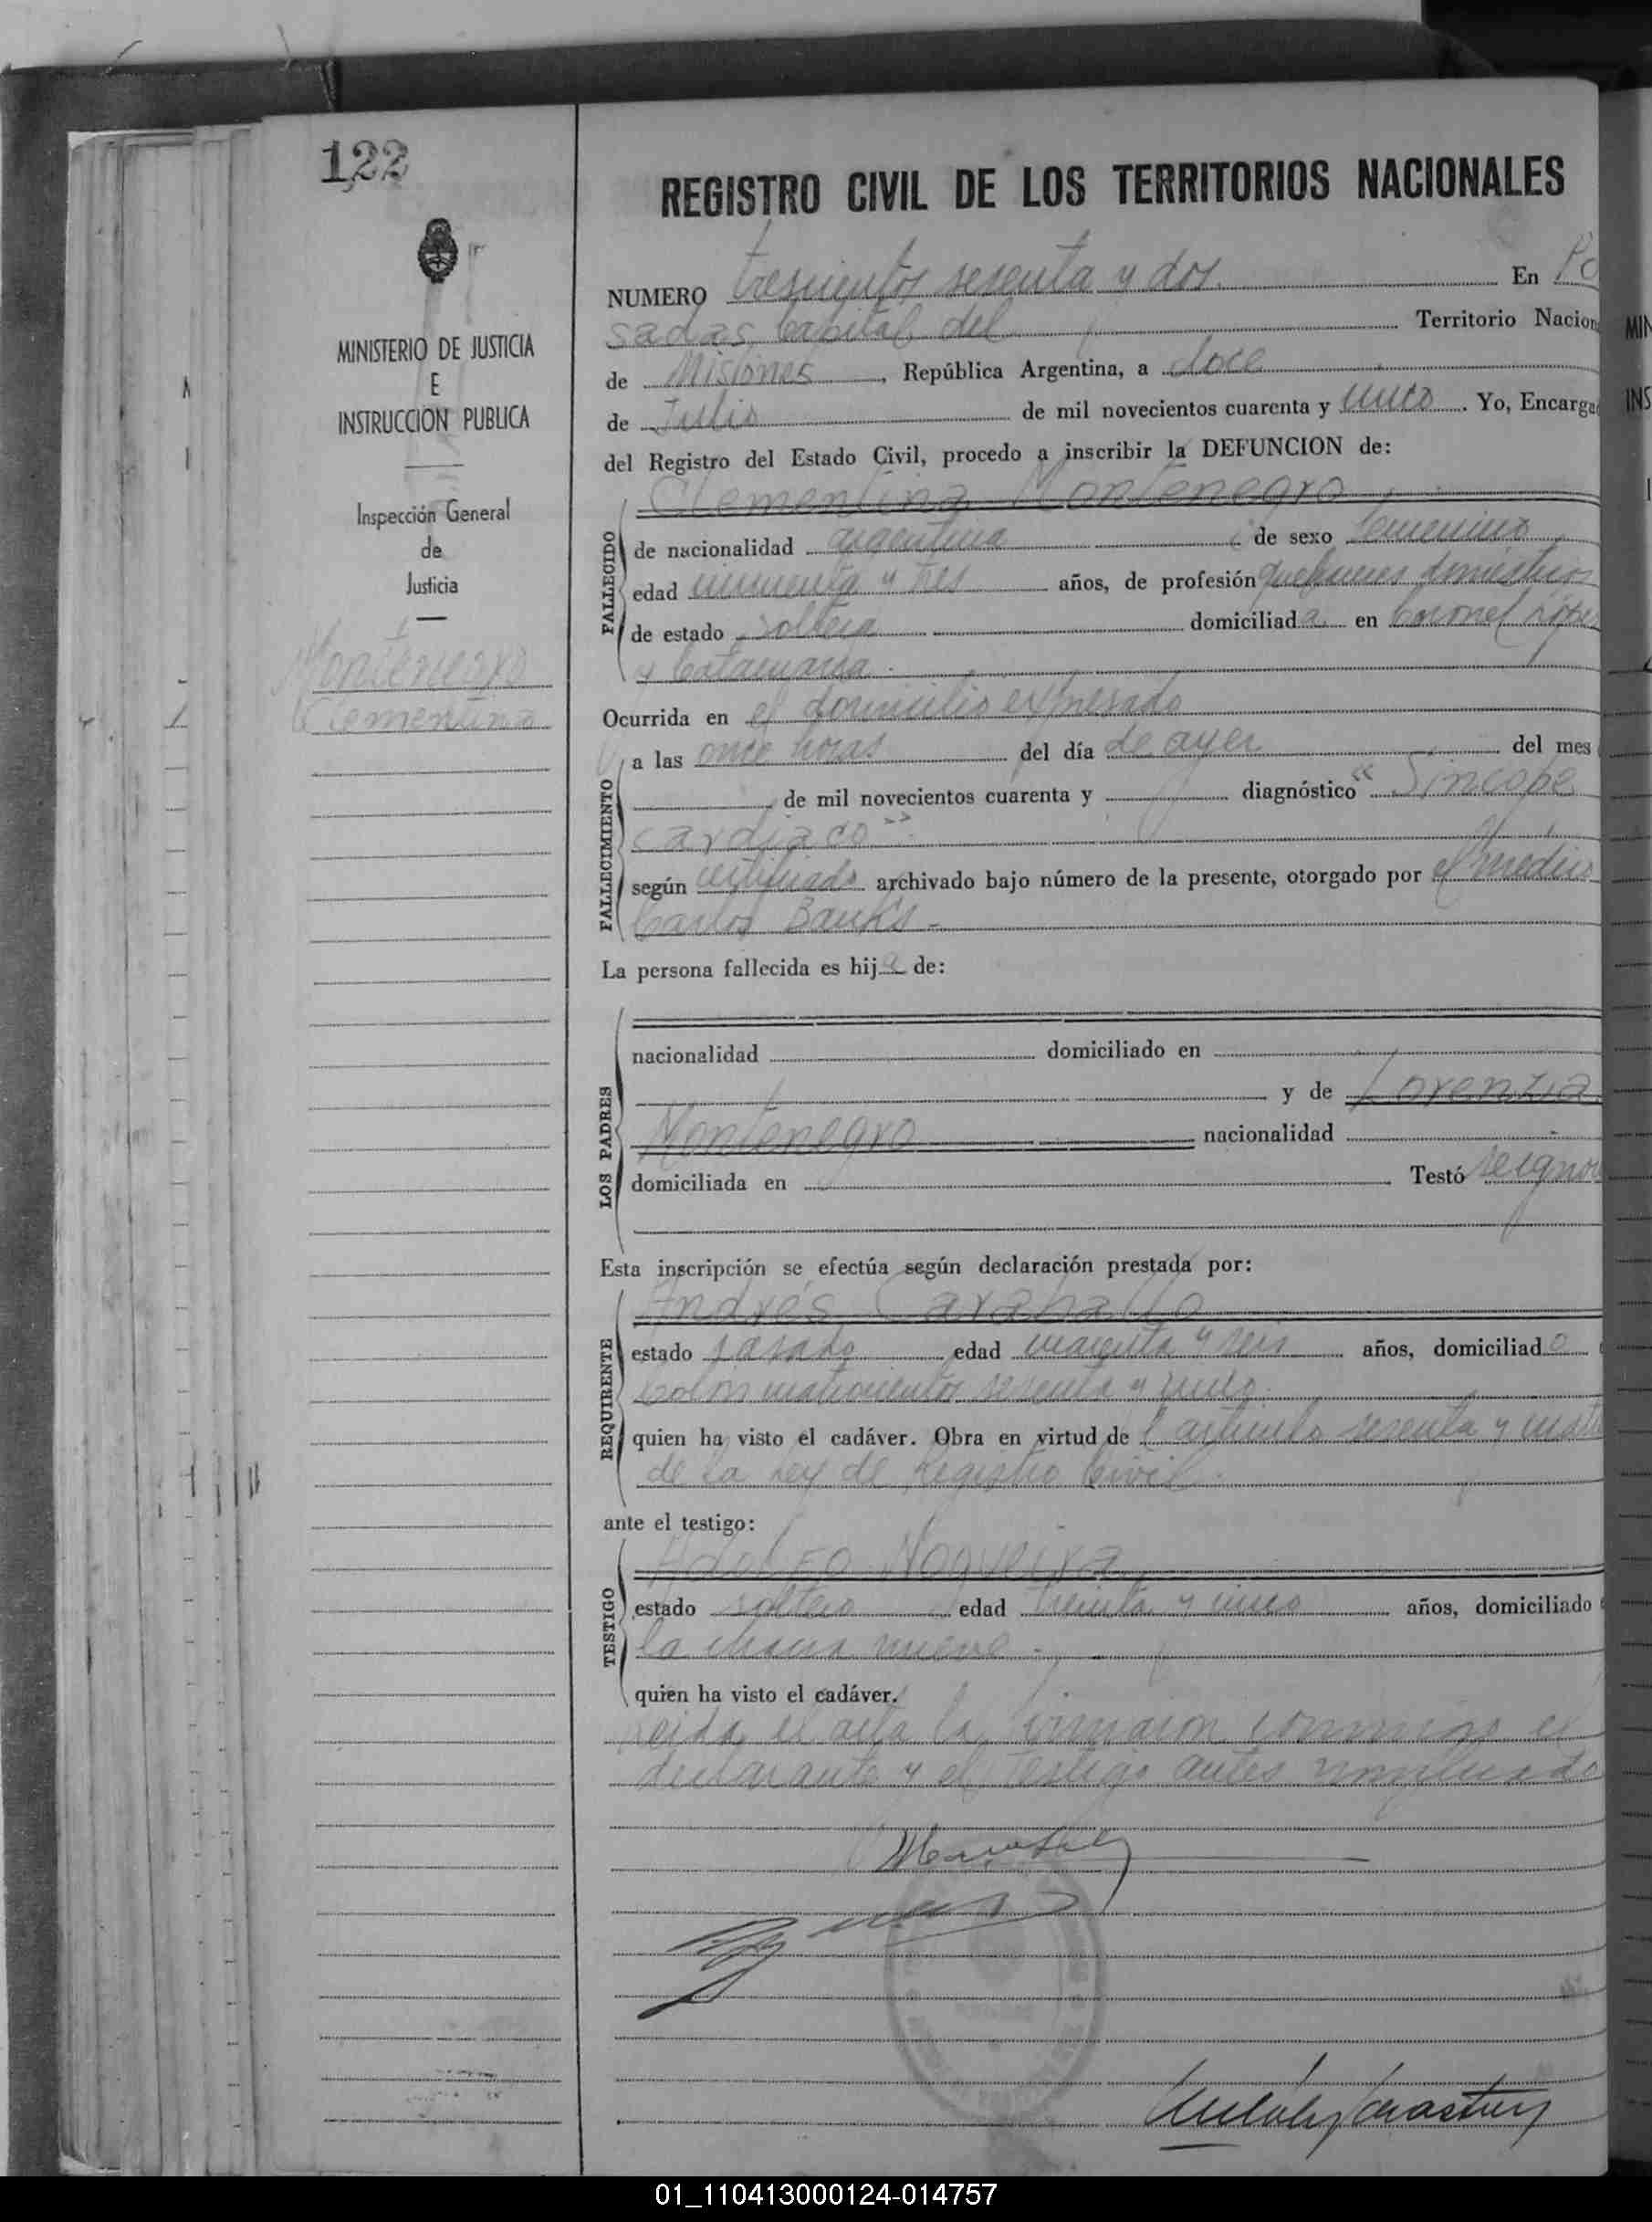 122
MINISTERIO DE JUSTICIA
E
INSTRUCCIÓN PUBLICA
Inspección General
de
Justicia
Montenegro
Clementina
REGISTRO CIVIL DE LOS TERRITORIOS NACIONALES
NUMERO trescientos sesenta y dos. En Po
sadas, Capital del Territorio Nacion
de Misiones, República Argentina, a doce
de Julio de mil novecientos cuarenta y cinco. Yo, Encarga
del Registro del Estado Civil, procedo a inscribir la DEFUNCION de:
Clementina Montenegro
FALLECIDO
de nacionalidad argentina de sexo femenino
edad cincuenta y tres años, de profesión quehaceres domésticos
de estado soltera domiciliada en Coronel López
y Catamarca.
Ocurrida en el domicilio expresado
FALLECIMIENTO
a las once horas del día de ayer del mes
de mil novecientos cuarenta y diagnóstico "Síncope
cardíaco".
según certificado archivado bajo número de la presente, otorgado por el médico
Carlos Banks -
La persona fallecida es hija de:
LOS PADRES
nacionalidad domiciliado en
y de Lorenza
Montenegro nacionalidad
domiciliada en Testó se ignora
Esta inscripción se efectúa según declaración prestada por:
REQUIRENTE
Andrés Caraballo
estado casado edad cuarenta y seis años, domiciliado
Colón cuatrocientos sesenta y cinco.
quien ha visto el cadáver. Obra en virtud del artículo sesenta y cuatro
de la Ley de Registro Civil.
ante el testigo:
TESTIGO
Adolfo Nogueira
estado soltero edad treinta y cinco años, domiciliado
la chacra nueve -
quien ha visto el cadáver.
Leída el acta la firmaron conmigo el
declarante y el testigo antes nombrado
01_110413000124-014757